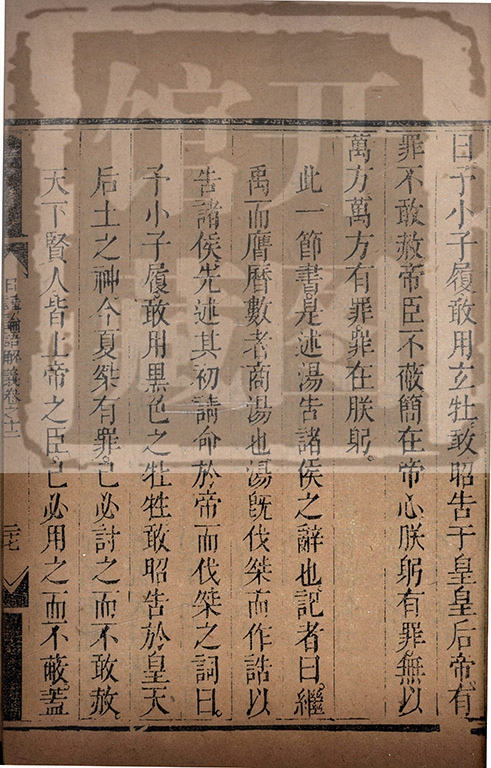 曰予小子履敢用玄牡敢昭告于皇皇后帝有
罪不敢赦帝臣不蔽簡在帝心朕躬有罪無以
萬方萬方有罪罪在朕躬
此一節書是述湯告諸侯之辭也記者曰繼
禹而膺曆數者商湯也湯既伐桀而作誥以
告諸侯先述其初請命於帝而伐桀之詞曰
予小子履敢用黑色之牡牲敢昭告於皇天
后土之神今夏桀有罪己必討之而不敢赦
天下賢人皆上帝之臣己必用之而不蔽蓋
日講論語解義卷之十二
二七